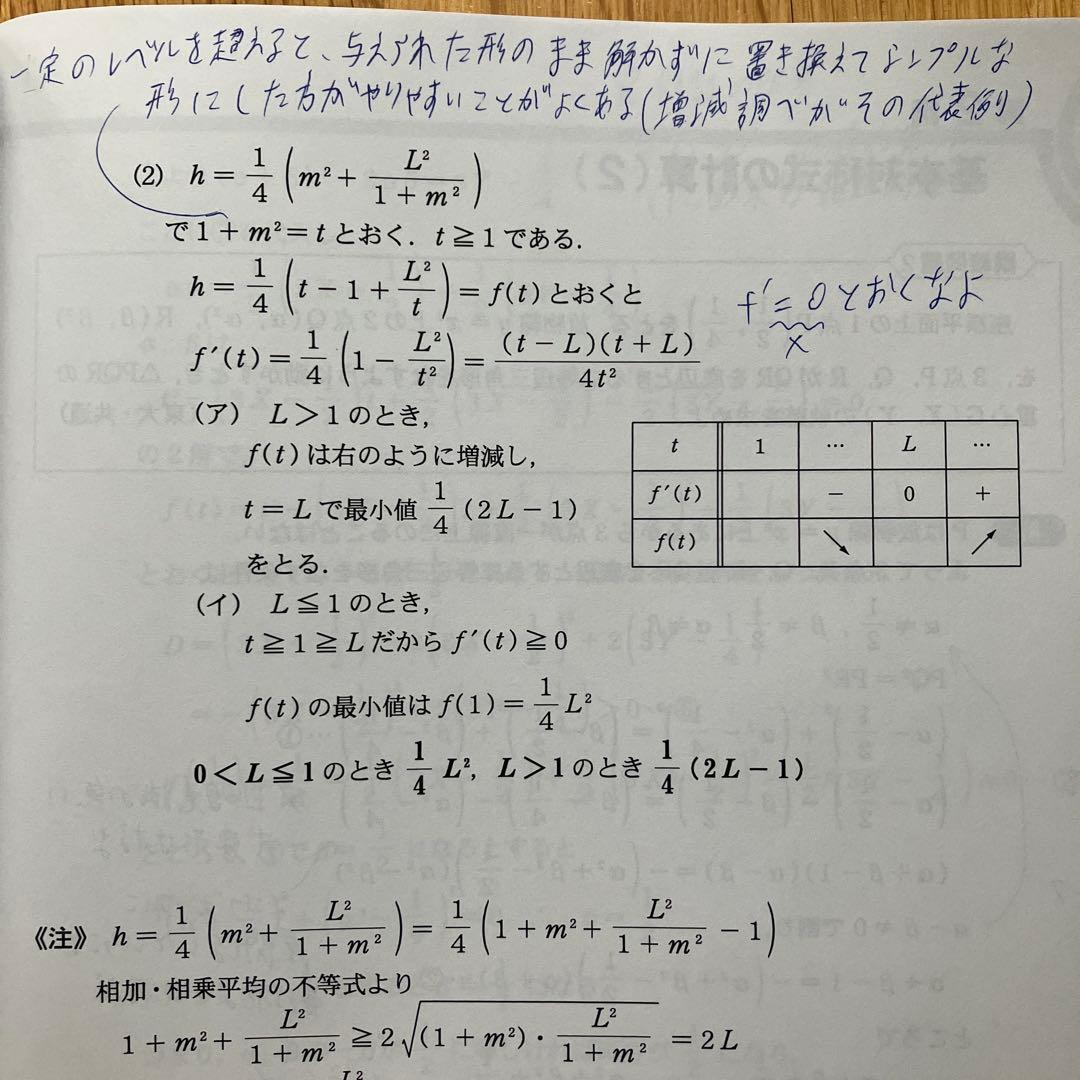 一定のレベルを超えると、与えられた形のまま解かずに置き換えてシンプルな
形にした方がやりやすいことがよくある(増減調べがその代表例)
(2) h = 1/4 (m² + L²/(1+m²))
で 1+m²=t とおく. t≧1 である.
h = 1/4 (t−1+L²/t) = f(t) とおくと
f′=0とおくなよ
×
f′(t) = 1/4 (1−L²/t²) = (t−L)(t+L)/4t²
(ア) L>1 のとき,
f(t) は右のように増減し,
t=L で最小値 1/4 (2L−1)
をとる.
t 1 … L …
f′(t) − 0 +
f(t) ↘ ↗
(イ) L≦1 のとき,
t≧1≧L だから f′(t)≧0
f(t) の最小値は f(1) = 1/4 L²
0<L≦1 のとき 1/4 L², L>1 のとき 1/4 (2L−1)
《注》 h = 1/4 (m² + L²/(1+m²)) = 1/4 (1+m² + L²/(1+m²) − 1)
相加・相乗平均の不等式より
1+m² + L²/(1+m²) ≧ 2√((1+m²)・L²/(1+m²)) = 2L
L²